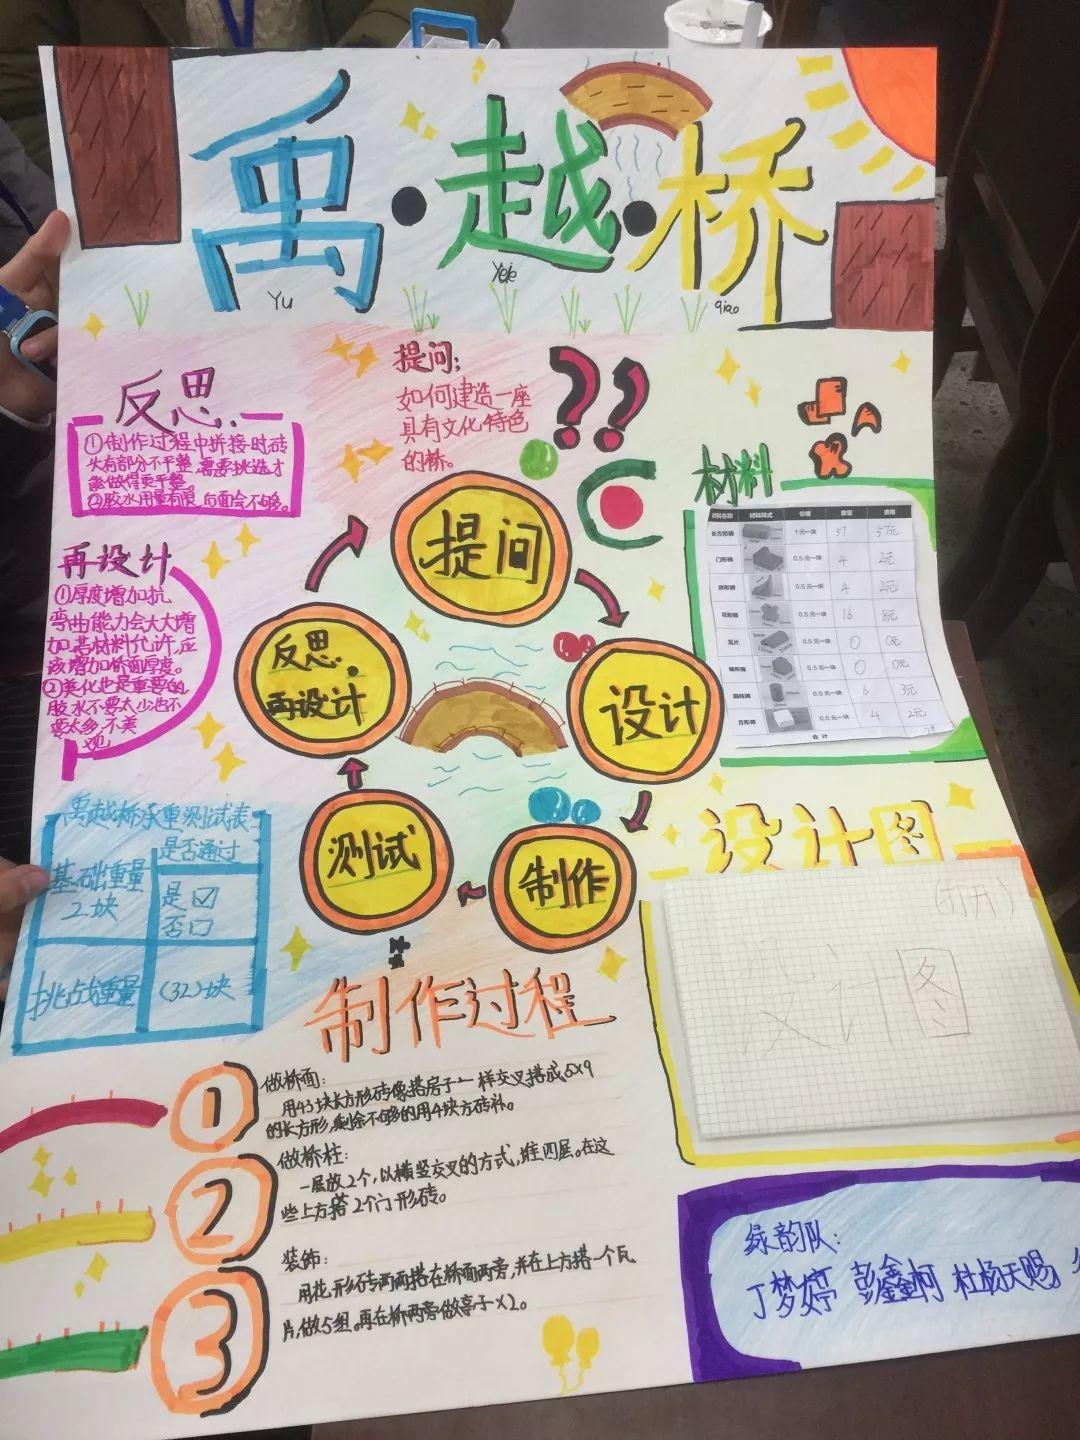 禹·越·桥
Yu
Yeje
qiao
反思
①制作过程中拼接时砖
头有部分不平整,需要挑选才
能做得更平整。
②胶水用量有限,后面会不够。
提问:
如何建造一座
具有文化特色
的桥。
??
材料
材料名称 材料样式 价格 数量 费用
长方形砖 1元一块 57 57元
门形砖 0.5元一块 4 2元
梯形砖 0.5元一块 4 2元
花形砖 0.5元一块 16 8元
瓦片 0.5元一块 0 0元
0.5元一块 0 0元
圆柱砖 0.5元一块 6 3元
方形砖 0.5元一块 4 2元
合计
再设计
①厚度增加抗
弯曲能力会大大增
加,若材料允许,应
该增加桥面厚度。
②美化也是重要的
胶水不要太少也不
要太多,不美
观
提问
设计
制作
测试
反思.
再设计
禹越桥承重测试表
基础重量
2块
是否通过
是☑
否□
挑战重量
(32)块
设计图
(打开)
设计图
制作过程
1
做桥面:
用43块长方形砖像搭房子一样交叉搭成5×9
的长方形,剩余不够的用4块方砖补。
2
做桥柱:
一层放2个,以横竖交叉的方式,堆四层。在这
些上方搭2个门形砖。
3
装饰:
用花形砖两两搭在桥面两旁,并在上方搭一个瓦
片,做5组。再在桥两旁做亭子×2。
绿韵队:
丁梦婷 彭鑫柯 杜杨天赐